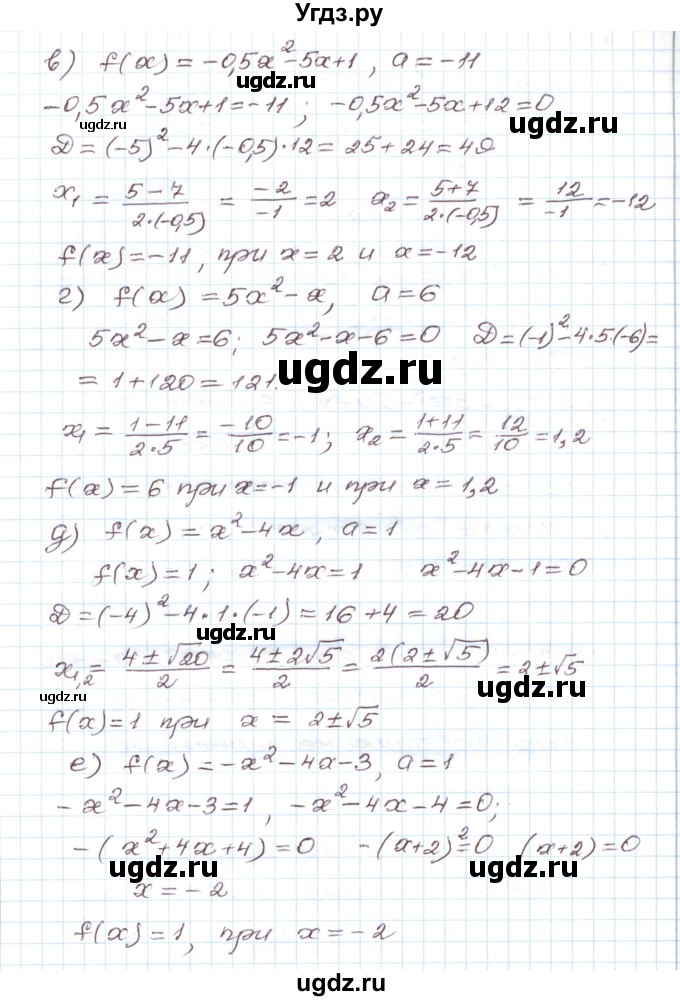 Угдз.ру
в) f(x) = -0,5x²-5x+1, a = -11
ugdz.ru
-0,5x²-5x+1=-11; -0,5x²-5x+12=0
ugdz.ru
ugdz.ru
Д = (-5)²-4·(-0,5)·12 = 25+24=49
x₁ = (5-7)/(2·(-0,5)) = (-2)/(-1) = 2   x₂ = (5+7)/(2·(-0,5)) = 12/(-1) = -12
f(x) = -11, при x = 2 и x = -12
г) f(x) = 5x²-x, a = 6
5x²-x=6; 5x²-x-6=0   Д=(-1)²-4·5·(-6)=
ugdz.ru
ugdz.ru
= 1+120 = 121.
x₁ = (1-11)/(2·5) = (-10)/10 = -1; x₂ = (1+11)/(2·5) = 12/10 = 1,2
f(x) = 6 при x=-1 и при x = 1,2
ugdz.ru
д) f(x) = x²-4x, a = 1
f(x) = 1; x²-4x=1   x²-4x-1=0
Д = (-4)²-4·1·(-1) = 16+4 = 20
ugdz.ru
x₁,₂ = (4±√20)/2 = (4±2√5)/2 = (2(2±√5))/2 = 2±√5
ugdz.ru
ugdz.ru
f(x) = 1 при x = 2±√5
е) f(x) = -x²-4x-3, a = 1
-x²-4x-3=1, -x²-4x-4=0;
ugdz.ru
-(x²+4x+4)=0   -(x+2)²=0   (x+2)=0
ugdz.ru
ugdz.ru
x = -2
f(x) = 1, при x = -2
ugdz.ru
ugdz.ru